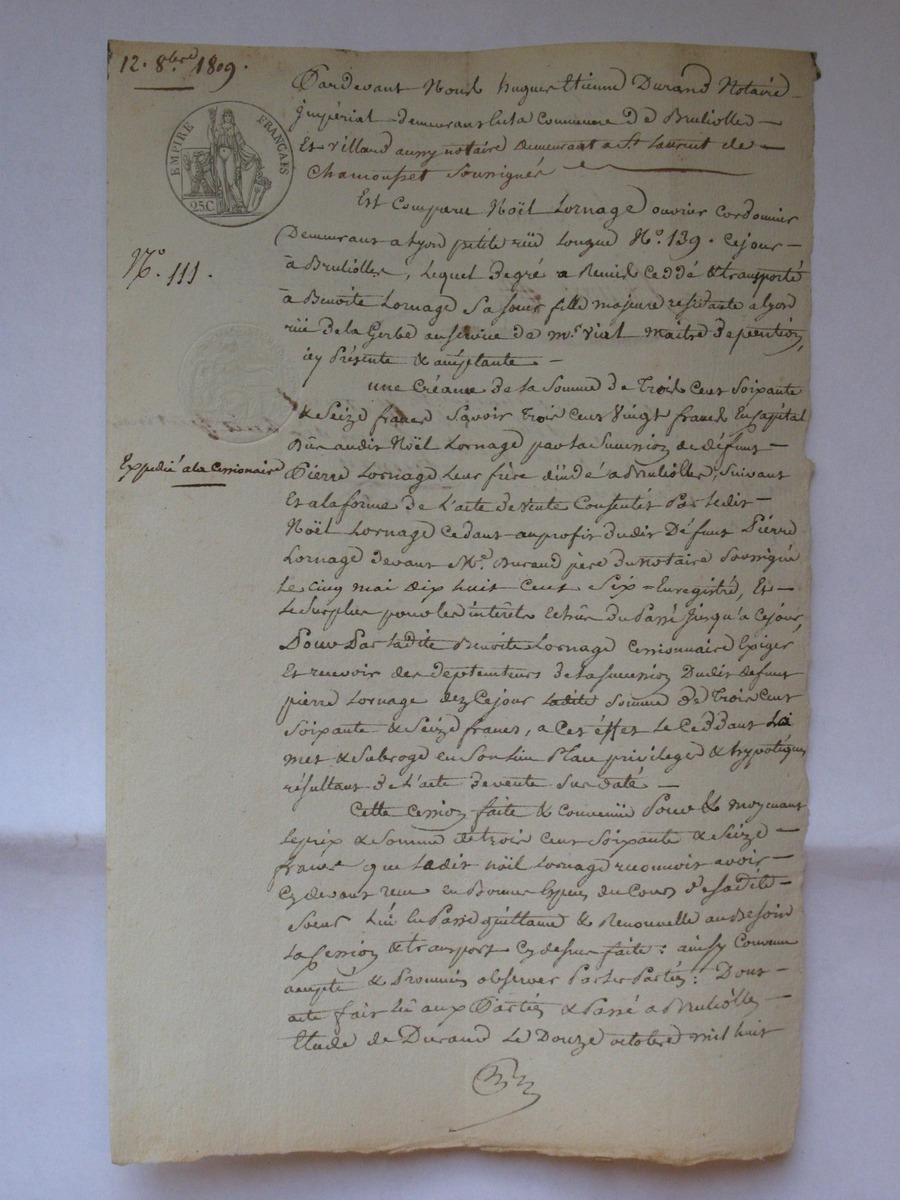 12. 8bre 1809.
EMPIRE FRANÇAIS
25C
Pardevant Nous hugues Etienne Durand Notaire
Impérial demeurant en la Commune de Brullioles
Et Villand aussy notaire demeurant a St Laurent de
Chamousset Soussignés
Est Comparu Noël Lornage ouvrier Cordonnier
Demeurant a Lyon petite rüe Longue No. 139. Cejour
N.o 111.
à Brullioles, Lequel de gré a Remis Ceddé & transporté
à Benoite Lornage Sa sœur fille majeure residante a Lyon
rüe de la Gerbe au service de mr. Vial maitre de pention,
icy Présente & acceptante
une Créance de la Somme de Trois Cent Soixante
& Seize francs Savoir Trois Cent Vingt francs En capital
Dûe audit Noël Lornage par la Succession de défunt
Expedié a la Cessionaire
Pierre Lornage Leur frère décédé a Brullioles, Suivant
Et a la forme de L'acte de Vente Consentis Par ledit
Noël Lornage Cedant au profit dudit Défunt Pierre
Lornage devant Me. Durand père du notaire Soussigné
Le cinq mai dix huit Cent Six Enregistré, Et
Le Surplus pour les intérêts Echus du Passé Jusqu'a Cejour,
Pour Par Ladite Benoite Lornage Cessionnaire Exiger
Et recevoir des deptenteurs de la succession Dudit defunt
pierre Lornage dez Cejour Ladite Somme de Trois Cent
Soixante & Seize francs, a Cet éffet Le Ceddant La
met & Subroge en Son Lieu Place privileges & hypotèques
résultant de L'acte de vente Sus daté
Cette Cession faite & Convenüe Pour & moyenant
Le prix & Somme de trois Cent Soixante & Seize
francs que Ledit noël Lornage reconnoit avoir
Cy devant reçu en Bonnes Espèces du Cours de Sadite
Sœur Lui en Passe quittance & Renouvelle au Besoin
La Cession & transport Cy dessus faite: ainsy Convenu
accepté & Promis observer Par les Parties: Dont
acte fait lû aux Parties & Passé a Brullioles
Etude de Durand Le Douze octobre mil huit